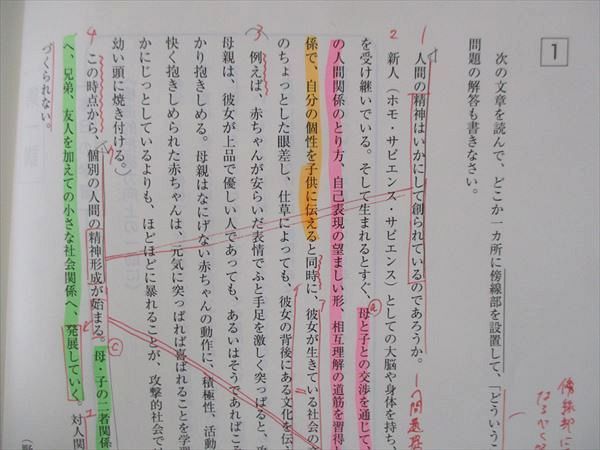 1
次の文章を読んで、どこか一カ所に傍線部を設置して、「どういうこ
問題の解答も書きなさい。
1
人間の精神はいかにして創られているのであろうか。
問題提
2
新人（ホモ・サピエンス）としての大脳や身体を持ち、
を受け継いでいる。そして生まれるとすぐ、母と子との交渉を通じて、
ⓐ
の人間関係のとり方、自己表現の望ましい形、相互理解の道筋を習得し
係で、自分の個性を子供に伝えると同時に、彼女が生きている社会の
のちょっとした眼差し、仕草によっても、彼女の背後にある文化を伝え
3
（例えば、赤ちゃんが安らいだ表情でふと手足を激しく突っぱると、
母親は、彼女が上品で優しい人であっても、あるいはそうであればこそ
かり抱きしめる。母親はなにげない赤ちゃんの動作に、積極性、活動
快く抱きしめられた赤ちゃんは、元気に突っぱれば喜ばれることを学習
かにじっとしているよりも、ほどほどに暴れることが、攻撃的社会で
幼い頭に焼き付ける。）
4
この時点から、個別の人間の精神形成が始まる。母・子の二者関係
ⓒ
へ、兄弟、友人を加えての小さな社会関係へ、発展していく
対人関
づくられない。